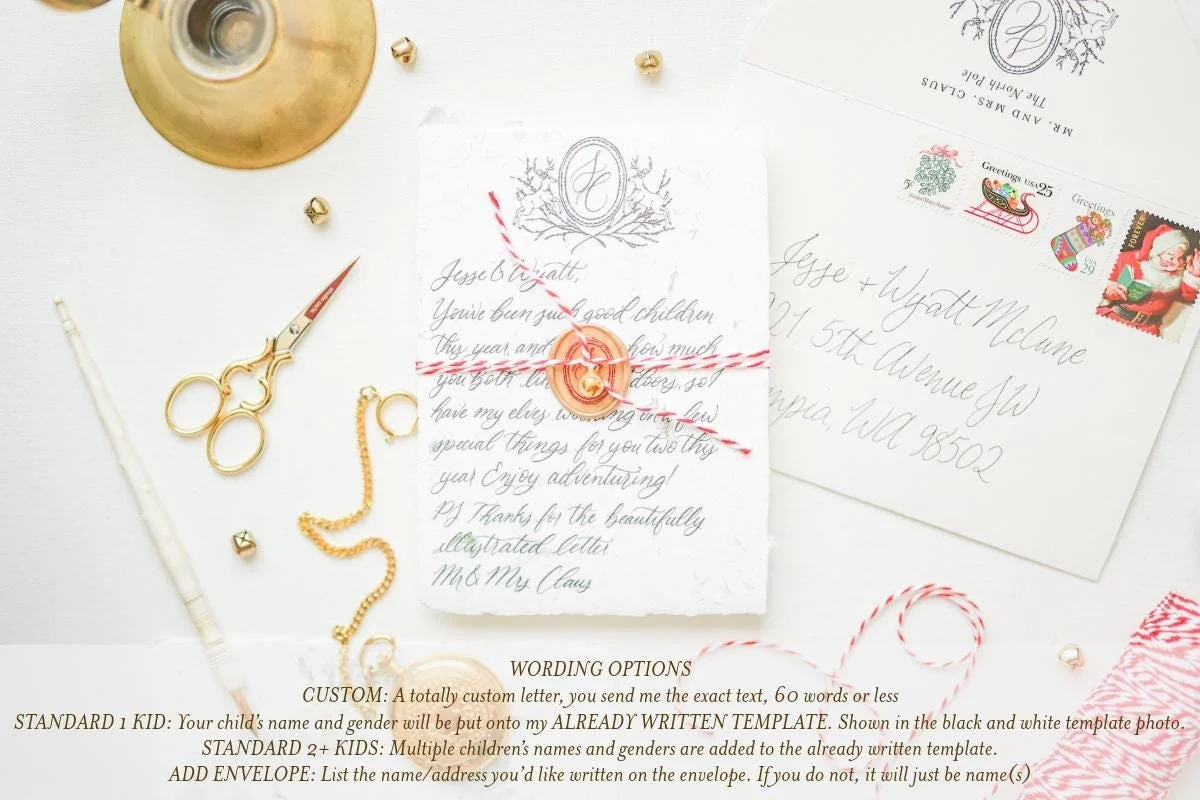 SC
Jesse & Wyatt,
You've been such good children
this year, and how much
you both doors, so I
have my elves working on a few
special things for you two this
year Enjoy adventuring!
PS Thanks for the beautifully
illustrated letter
Mr & Mrs Claus
MR. AND MRS. CLAUS
The North Pole
5c
Greetings USA 25
Greetings
USA
29
FOREVER
Jesse + Wyatt McCune
21 5th Avenue SW
mpia, WA 98502
WORDING OPTIONS
CUSTOM: A totally custom letter, you send me the exact text, 60 words or less
STANDARD 1 KID: Your child's name and gender will be put onto my ALREADY WRITTEN TEMPLATE. Shown in the black and white template photo.
STANDARD 2+ KIDS: Multiple children's names and genders are added to the already written template.
ADD ENVELOPE: List the name/address you'd like written on the envelope. If you do not, it will just be name(s)